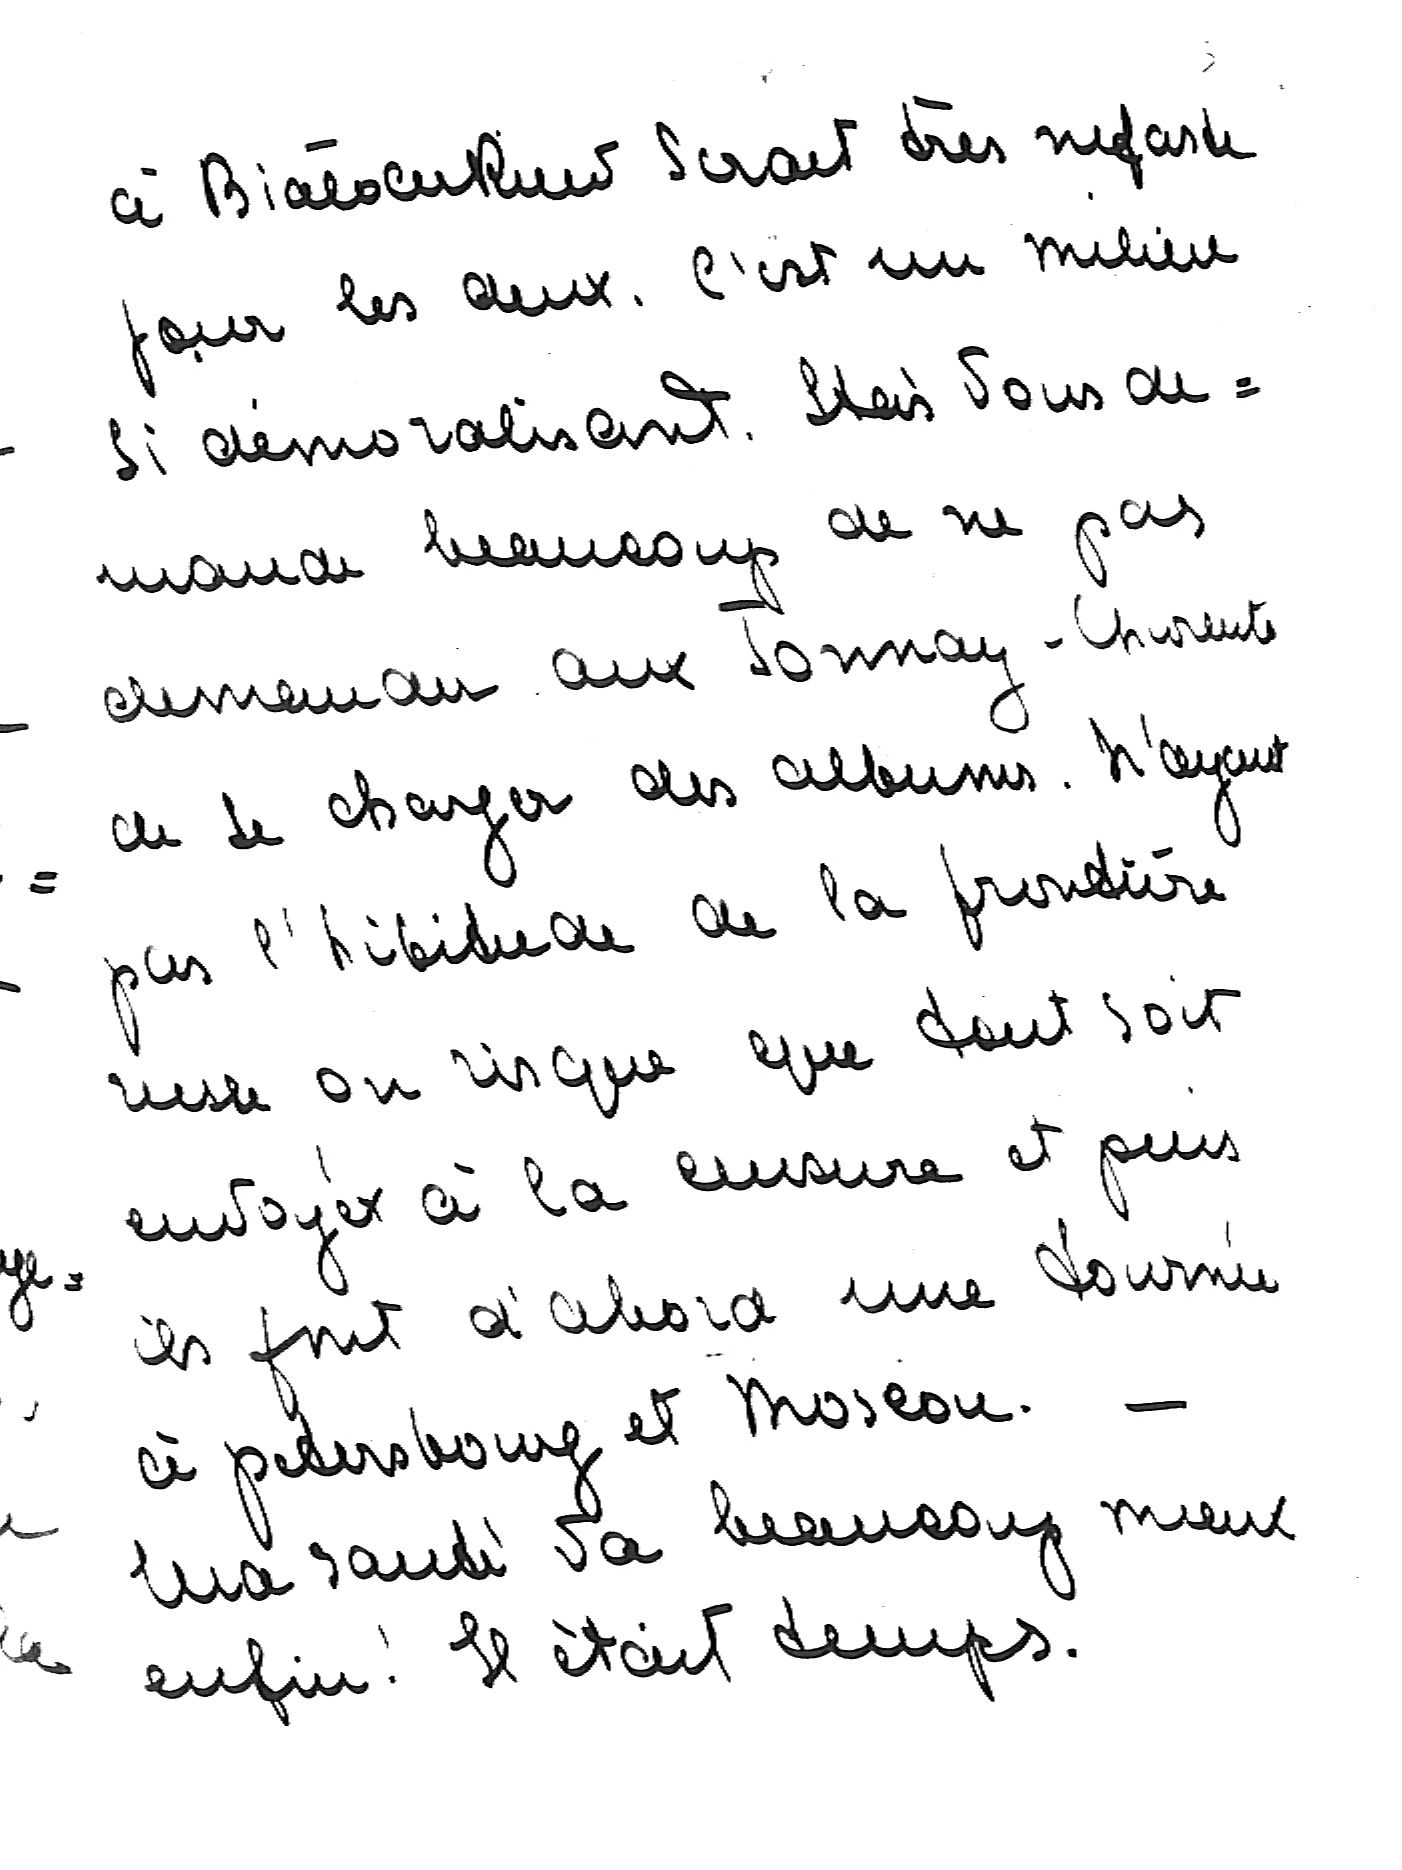 à Białocerkiew serait très néfaste
pour les deux. C'est un milieu
si démoralisant. Stas vous de=
mande beaucoup de ne pas
demander aux Tonnay-Charente
de se charger des albums. N'ayant
pas l'hibitude de la frontière
russe on risque que tout soit
envoyéx à la censure et puis
ils font d'abord une tournée
à petersbourg et Moscou. —
Ma santé va beaucoup mieux
enfin! Il était temps.